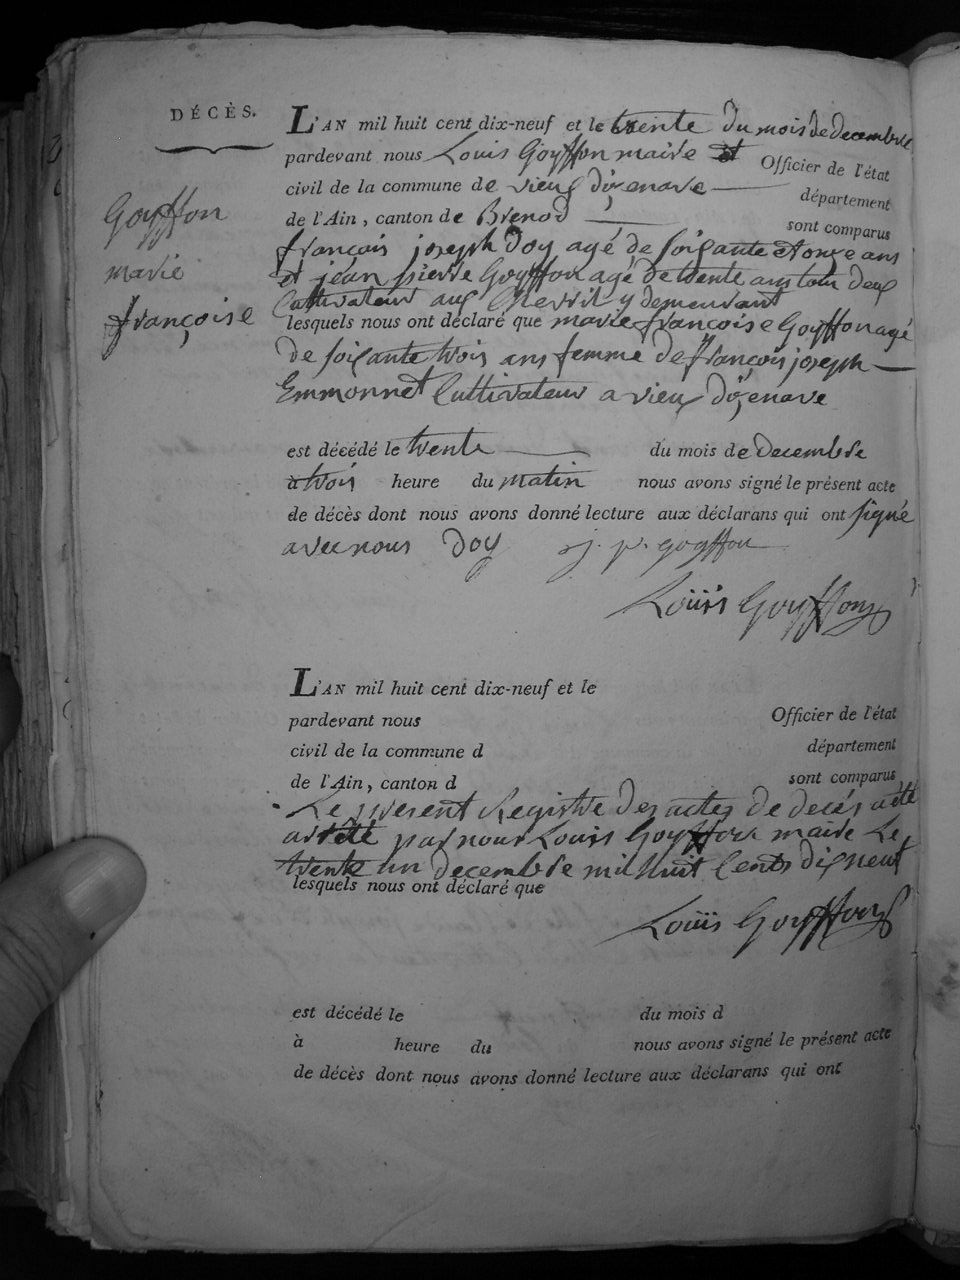 DÉCÈS.
Goyffon
marie
françoise
L'AN mil huit cent dix-neuf et le trente du mois de decembre
pardevant nous Louis Goyffon maire et Officier de l'état
civil de la commune de vieux d'izenave département
de l'Ain, canton de Brenod sont comparus
françois joseph Doy agé de soixante et onze ans
et jean pierre Goyffon agé de trente ans tous deux
Cultivateur aux y demeurant
lesquels nous ont déclaré que marie françoise Goyffon agé
de soixante trois ans femme de françois joseph
Emmonnet Cultivateur a vieux d'izenave
est décédé le trente du mois de decembre
à trois heure du matin nous avons signé le présent acte
de décès dont nous avons donné lecture aux déclarans qui ont signé
avec nous Doy j. p. goyffon
Louis Goyffon
L'AN mil huit cent dix-neuf et le
pardevant nous Officier de l'état
civil de la commune d département
de l'Ain, canton d sont comparus
Le present Registre des actes de decés a été
arrété par nous Louis Goyffon maire Le
trente un decembre mil huit Cents dix neuf
lesquels nous ont déclaré que
Louis Goyffon
est décédé le du mois d
à heure du nous avons signé le présent acte
de décès dont nous avons donné lecture aux déclarans qui ont